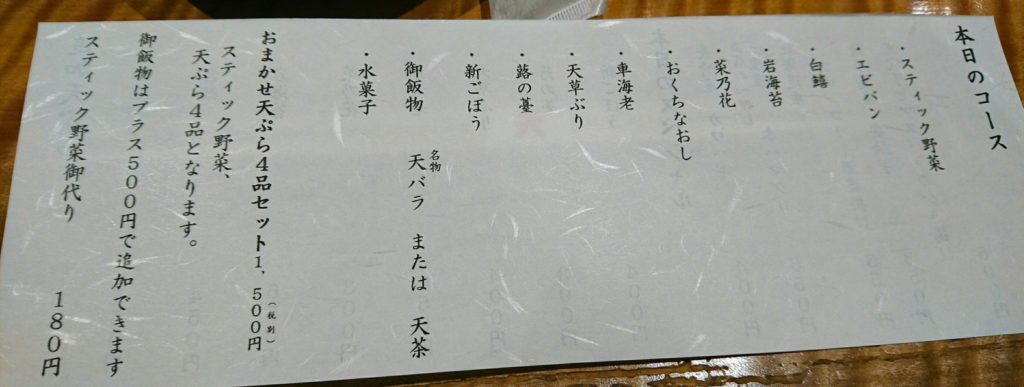 本日のコース
・スティック野菜
・エビパン
・白鱚
・岩海苔
・菜乃花
・おくちなおし
・車海老
・天草ぶり
・蕗の薹
・新ごぼう
・御飯物 名物 天バラ または 天茶
・水菓子
おまかせ天ぷら4品セット1,500円(税別)
スティック野菜、
天ぷら4品となります。
御飯物はプラス500円で追加できます
スティック野菜御代り 180円